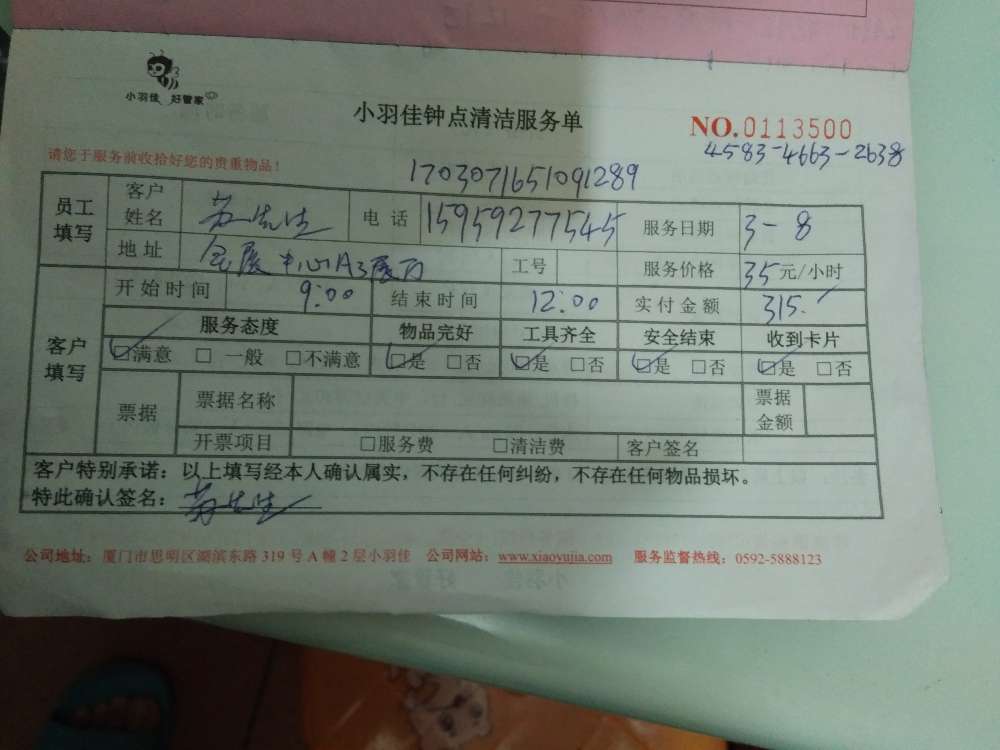 小羽佳 好管家
小羽佳钟点清洁服务单
NO.0113500
4583-4663-2638
请您于服务前收拾好您的贵重物品！
1703071651091289
员工填写 客户姓名 苏先生 电话 15959277545 服务日期 3-8
地址 会展中心A3展厅 工号 服务价格 35元/小时
客户填写 开始时间 9:00 结束时间 12:00 实付金额 315.
服务态度 物品完好 工具齐全 安全结束 收到卡片
☑满意 □一般 □不满意 ☑是 □否 ☑是 □否 ☑是 □否 ☑是 □否
票据 票据名称 票据金额
开票项目 □服务费 □清洁费 客户签名
客户特别承诺：以上填写经本人确认属实，不存在任何纠纷，不存在任何物品损坏。
特此确认签名：苏先生
公司地址：厦门市思明区湖滨东路319号A幢2层小羽佳 公司网站：www.xiaoyujia.com 服务监督热线：0592-5888123